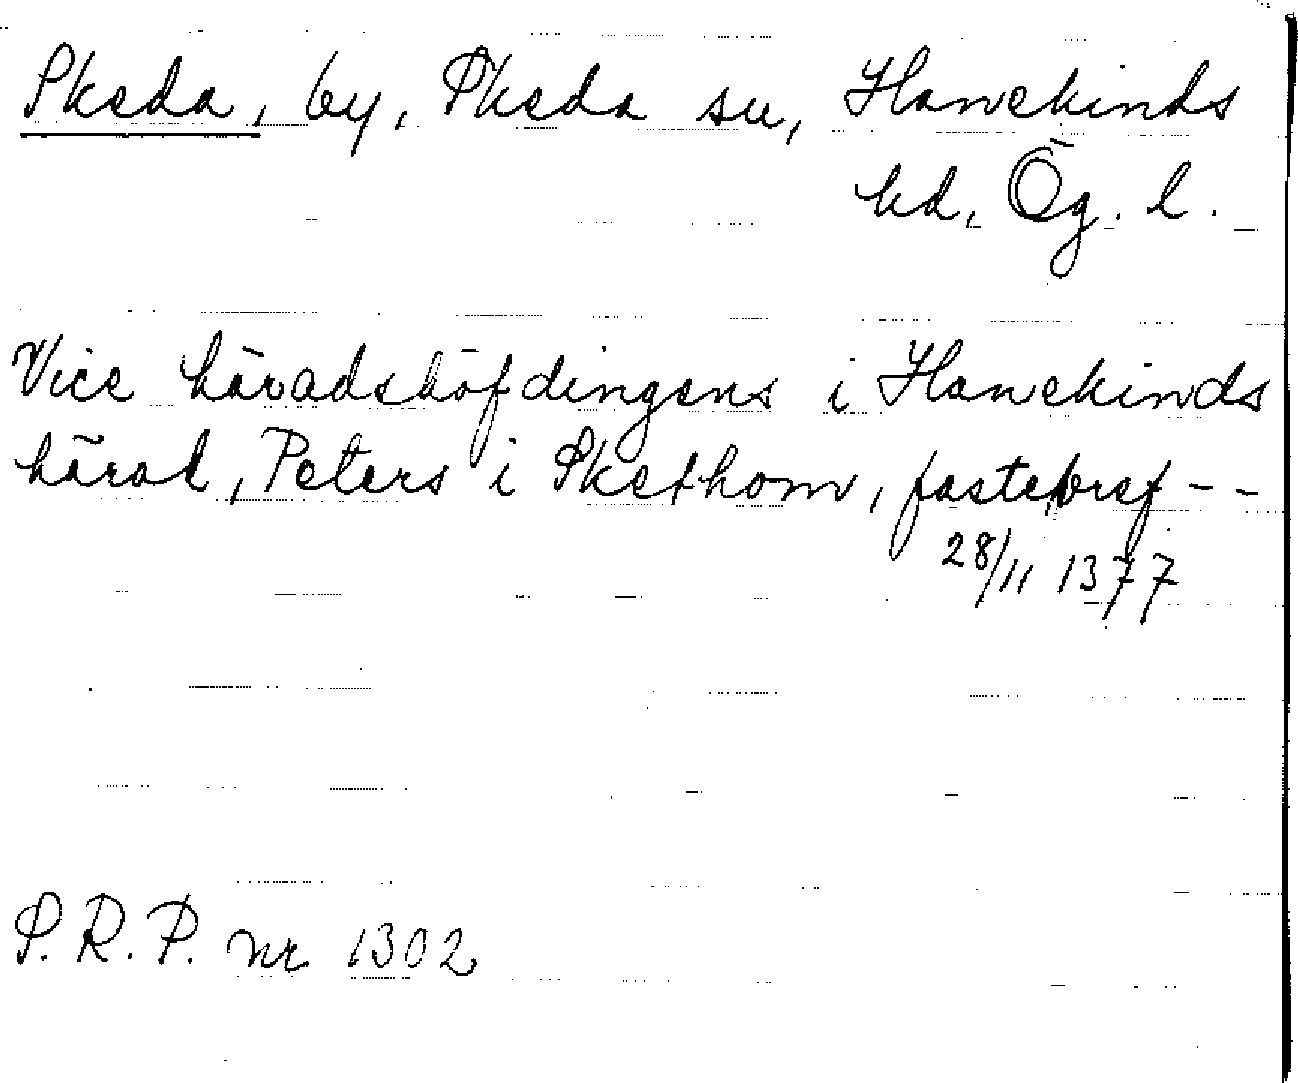 Skeda, by, Skeda sn, Hanekinds
hd, Ög. l.
Vice häradshöfdingens i Hanekinds
härad, Peters i Skethom, fastebref - -
28/11 1377
S.R.P. nr 1302